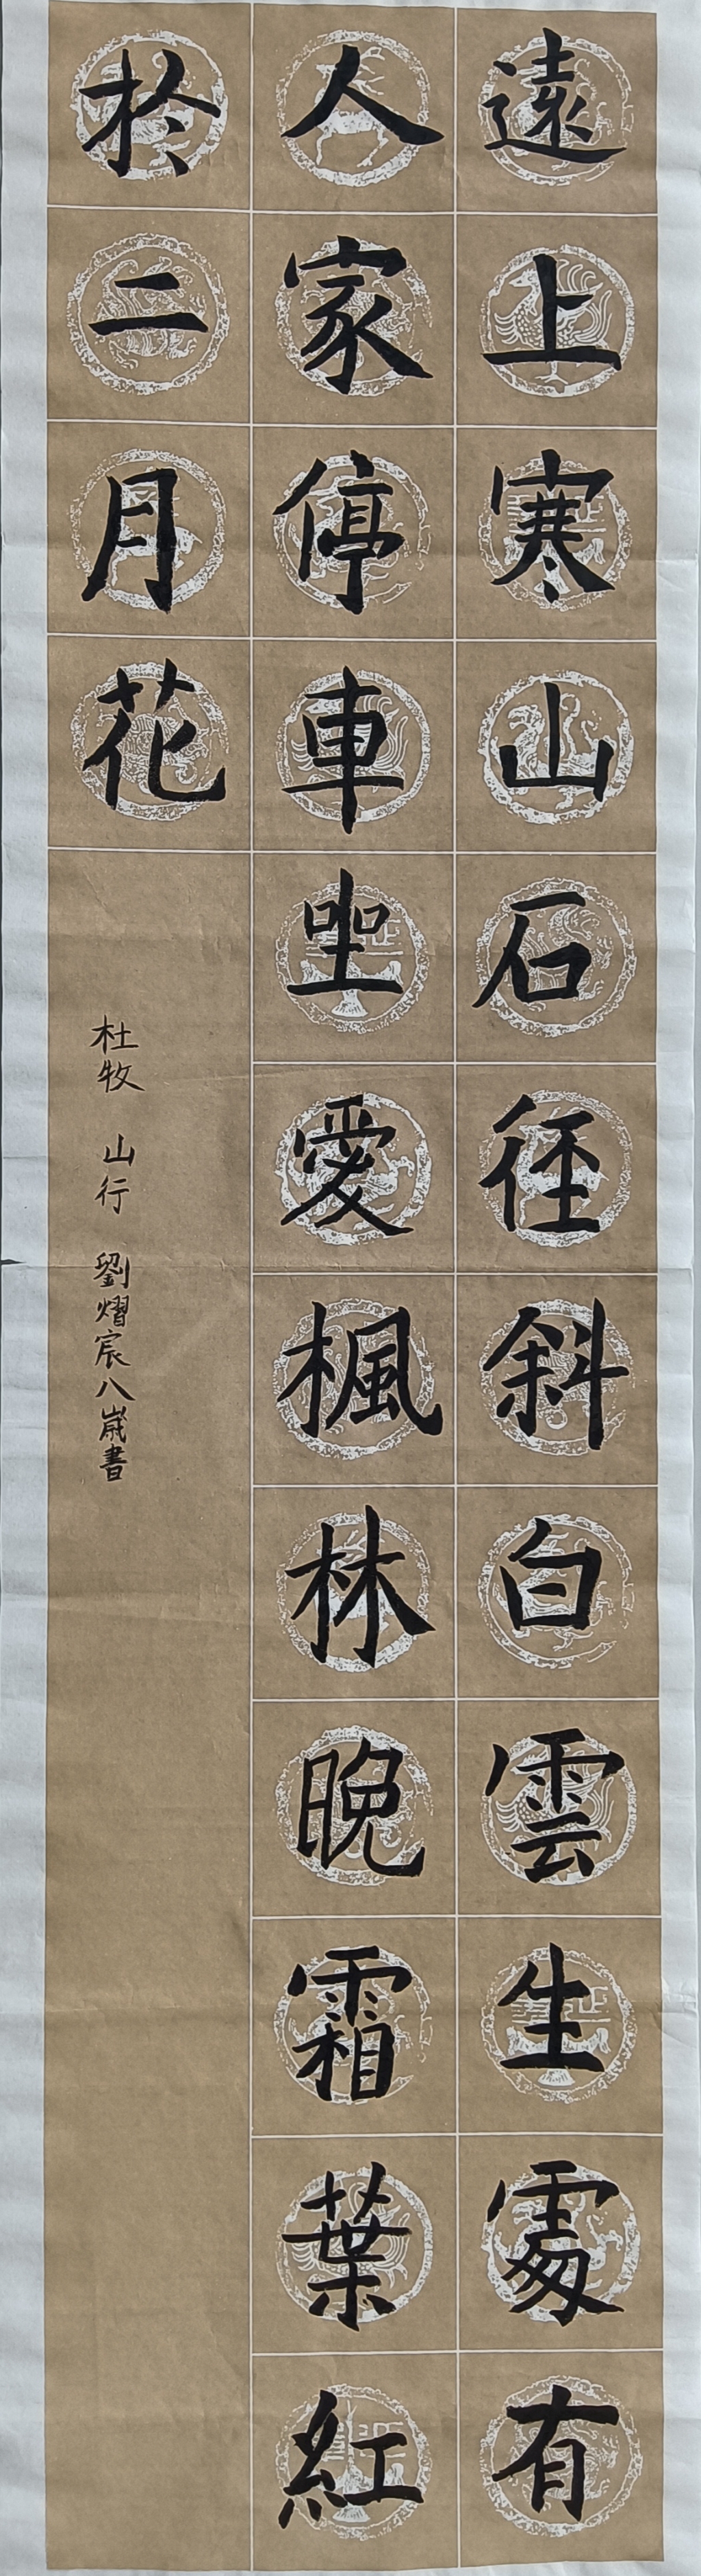 遠上寒山石徑斜白雲生處有
人家停車坐愛楓林晚霜葉紅
於二月花
杜牧 山行 劉熠宸八歲書